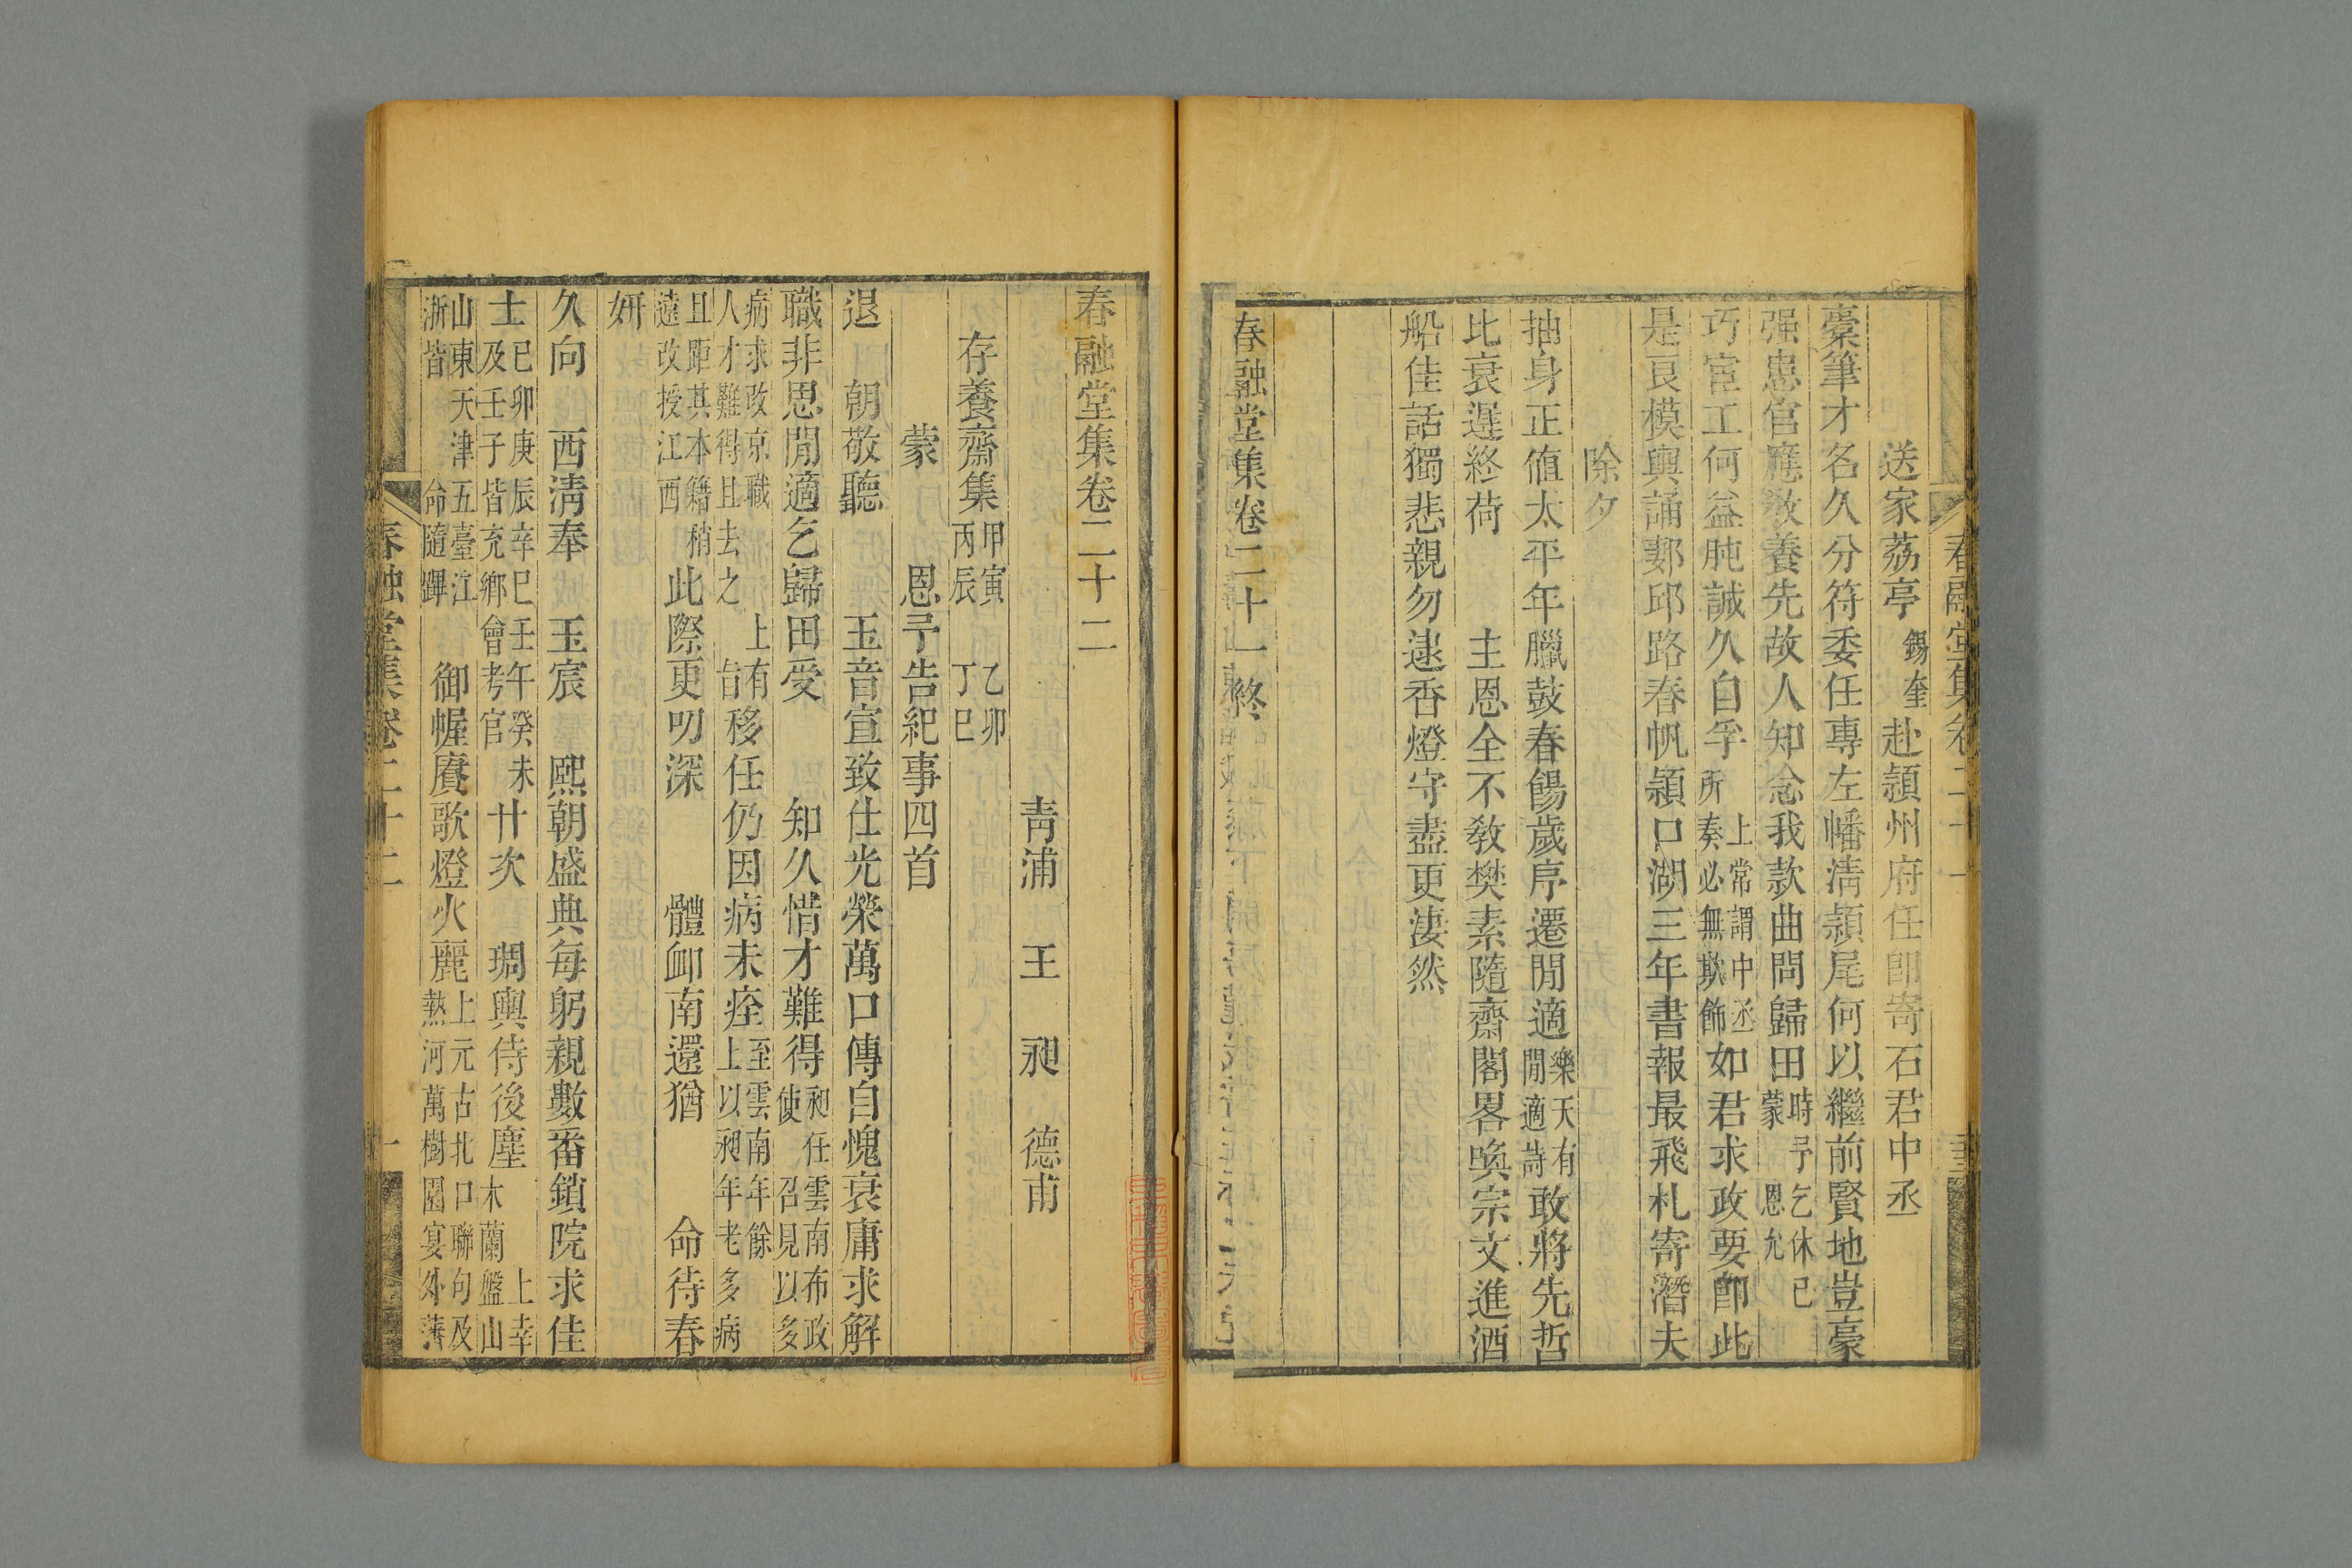 送家荔亭錫奎赴潁州府任卽寄石君中丞
槖筆才名久分符委任專左幡淸潁尾何以繼前賢地豈豪
强患官應敎養先故人知念我款曲問歸田時予乞休已蒙恩允
巧宦工何益肫誠久自孚上常謂中丞所奏必無欺飾如君求政要卽此
是良模輿誦郪邱路春帆潁口湖三年書報最飛札寄潛夫
除夕
抽身正値太平年臘鼓春餳歲序遷閒適樂天有閒適詩敢將先哲
比衰遲終荷主恩全不敎樊素隨齋閣畧喚宗文進酒
船佳話獨悲親勿逮香燈守盡更淒然
春融堂集卷二十一終
春融堂集卷二十二
靑浦王昶德甫
存養齋集甲寅乙卯丙辰丁巳
蒙恩予告紀事四首
退朝敬聽玉音宣致仕光榮萬口傳自愧衰庸求解
職非思閒適乞歸田受知久惜才難得昶任雲南布政使召見以多
病求政京職上有人才難得且去之旨移任仍因病未痊至雲南年餘上以昶年老多病
且距其本籍稍遠改授江西此際更叨深體卹南還猶命待春
妍
久向西淸奉玉宸熙朝盛典每躬親數番鎖院求佳
士己卯庚辰辛巳壬午癸未及壬子皆充鄉會考官廿次琱輿侍後塵上幸木蘭盤山
山東天津五臺江浙皆命隨蹕御幄賡歌燈火麗上元古北口聯句及熱河萬樹園宴外藩
春融堂集卷二十二
一